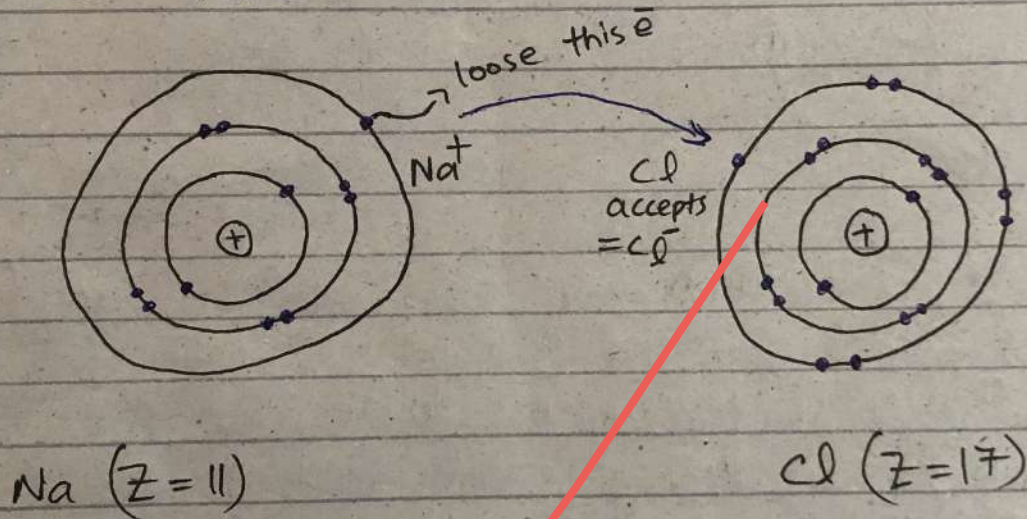 loose this e̅
Na⁺
Cl
accepts
= Cl⁻
+
+
Na (Z = 11)
Cl (Z = 17)